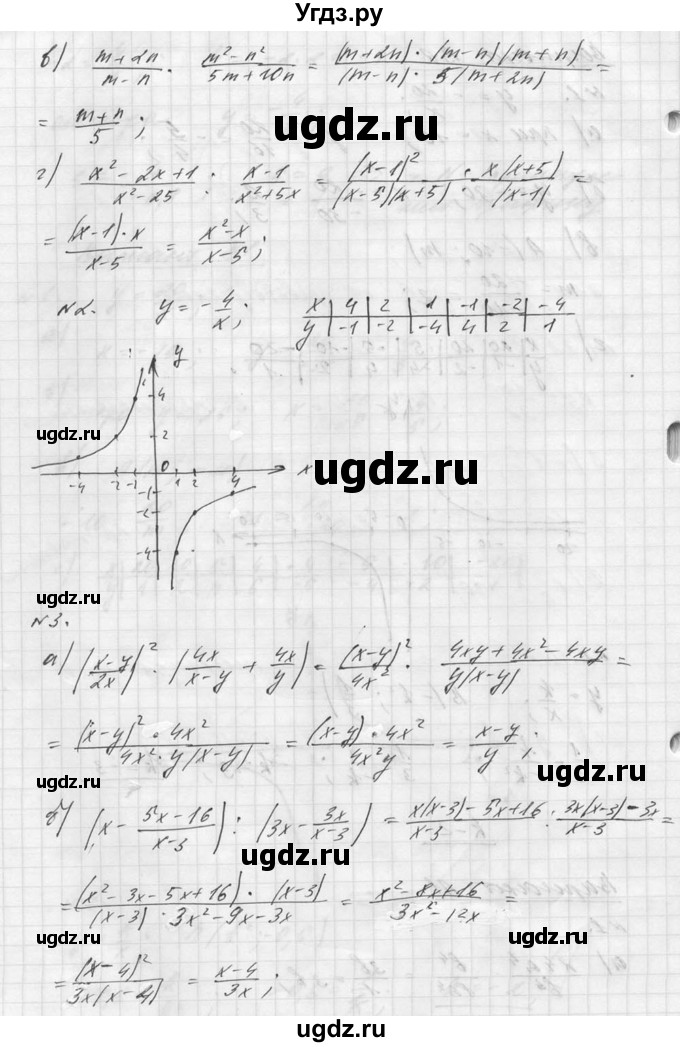 Угдз.ру
в) (m+2n)/(m-n) · (m²-n²)/(5m+10n) = ((m+2n)·(m-n)(m+n))/((m-n)·5(m+2n)) =
= (m+n)/5 ;
ugdz.ru ugdz.ru
г) (x²-2x+1)/(x²-25) : (x-1)/(x²+5x) = (x-1)²/((x-5)(x+5)) · x(x+5)/(x-1) =
= ((x-1)·x)/(x-5) = (x²-x)/(x-5) ;
№2. y = -4/x ;
x | 4 | 2 | 1 | -1 | -2 | -4
y | -1 | -2 | -4 | 4 | 2 | 1
y
4
ugdz.ru ugdz.ru
2
0 x
-4 -2 -1 1 2 4
ugdz.ru
-1
-4
ugdz.ru ugdz.ru
№3.
а) ((x-y)/2x)² · (4x/(x-y) + 4x/y) = (x-y)²/4x² · (4xy+4x²-4xy)/(y(x-y)) =
= ((x-y)²·4x²)/(4x²·y(x-y)) = ((x-y)·4x²)/(4x²y) = (x-y)/y ;
ugdz.ru ugdz.ru
б) (x - (5x-16)/(x-3)) : (3x - 3x/(x-3)) = (x(x-3)-5x+16)/(x-3) : (3x(x-3)-3x)/(x-3) =
ugdz.ru
= ((x²-3x-5x+16)·(x-3))/((x-3)·3x²-9x-3x) = (x²-8x+16)/(3x²-12x) =
ugdz.ru ugdz.ru
= (x-4)²/(3x(x-4)) = (x-4)/3x ;
ugdz.ru